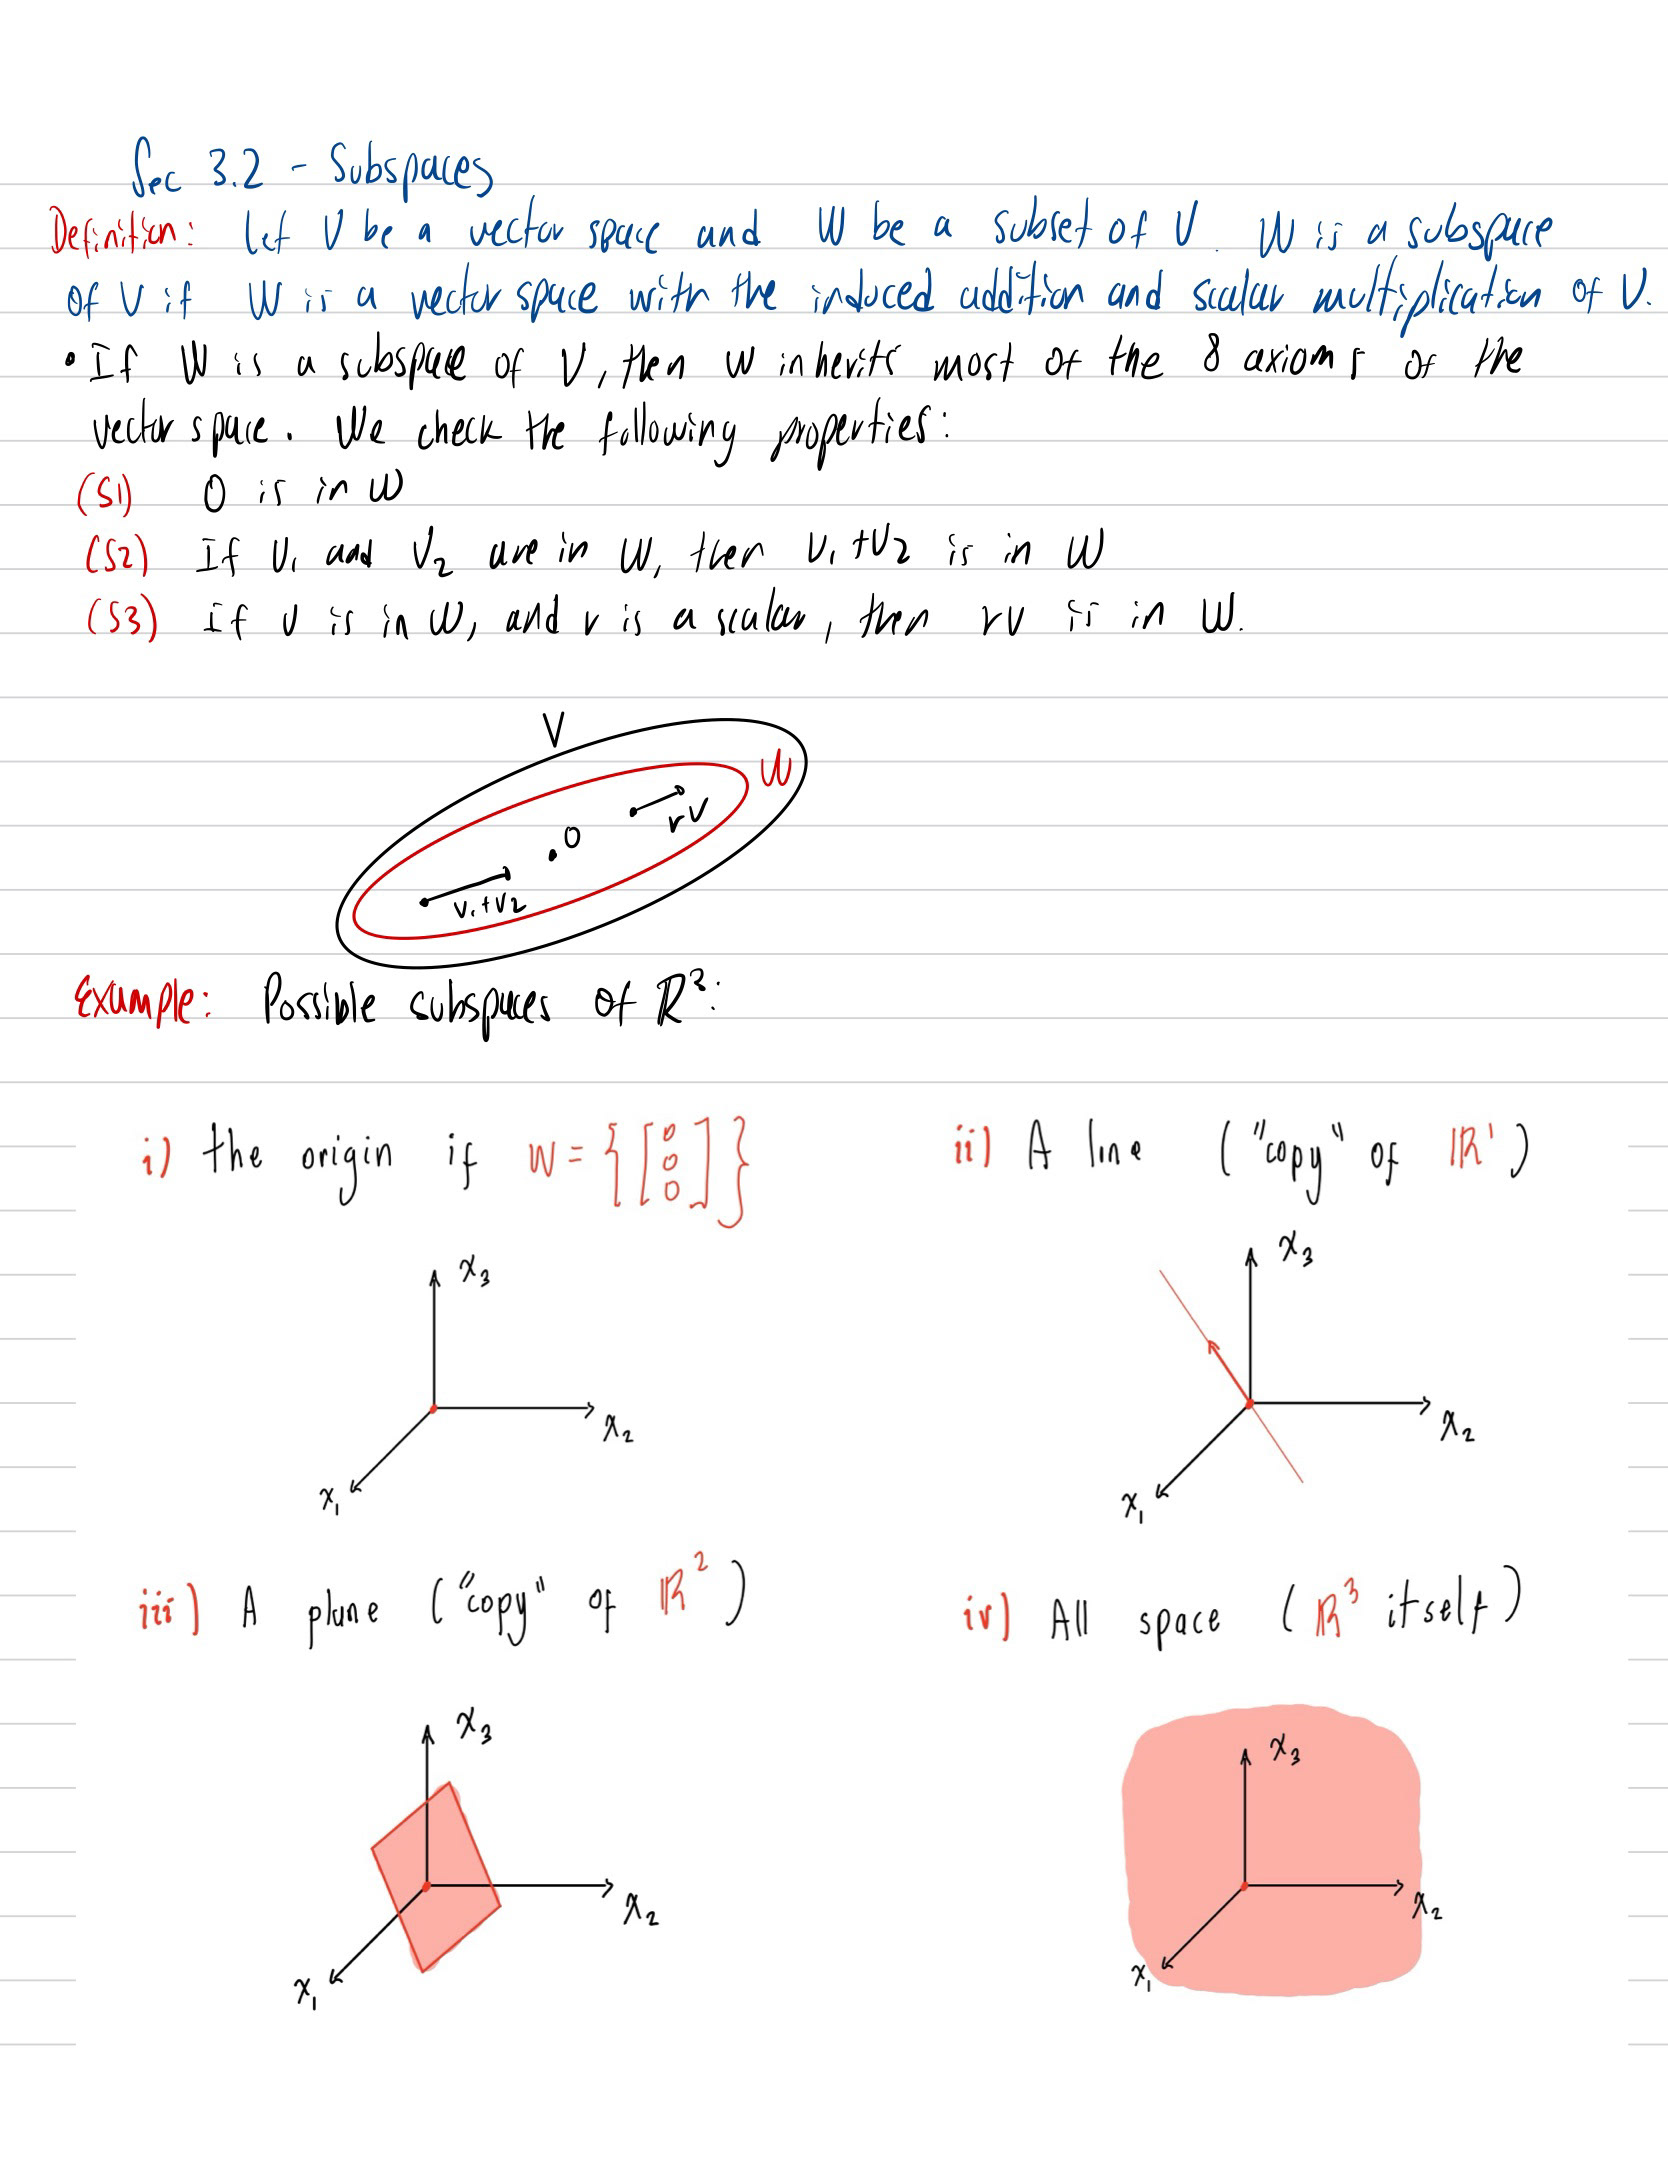 Sec 3.2 - Subspaces
Definition: Let V be a vector space and W be a subset of V. W is a subspace
of V if W is a vector space with the induced addition and scalar multiplication of V.
• If W is a subspace of V, then W inherits most of the 8 axioms of the
vector space. We check the following properties:
(S1) 0 is in W
(S2) If v₁ and v₂ are in W, then v₁+v₂ is in W
(S3) If v is in W, and r is a scalar, then rv is in W.
V
W
rv
0
v₁+v₂
Example: Possible subspaces of ℝ³:
i) the origin if W = {[0 0 0]}
ii) A line ("copy" of ℝ¹)
x₃
x₂
x₁
x₃
x₂
x₁
iii) A plane ("copy" of ℝ²)
iv) All space (ℝ³ itself)
x₃
x₂
x₁
x₃
x₂
x₁